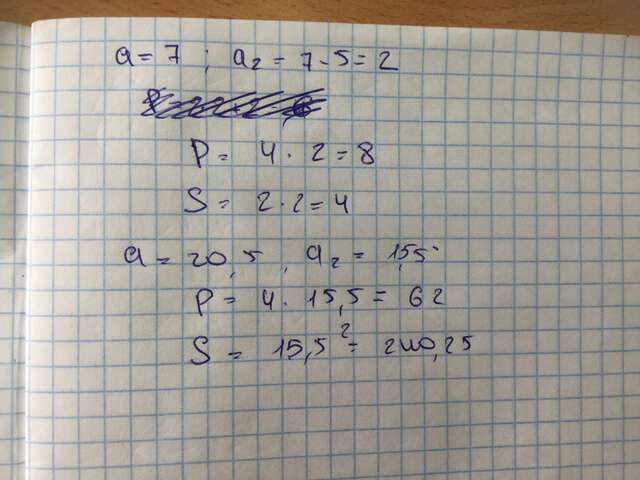 a = 7 ; a₂ = 7 - 5 = 2
P = 4 · 2 = 8
S = 2 · 2 = 4
a = 20,5 , a₂ = 15,5
P = 4 · 15,5 = 62
S = 15,5² = 240,25